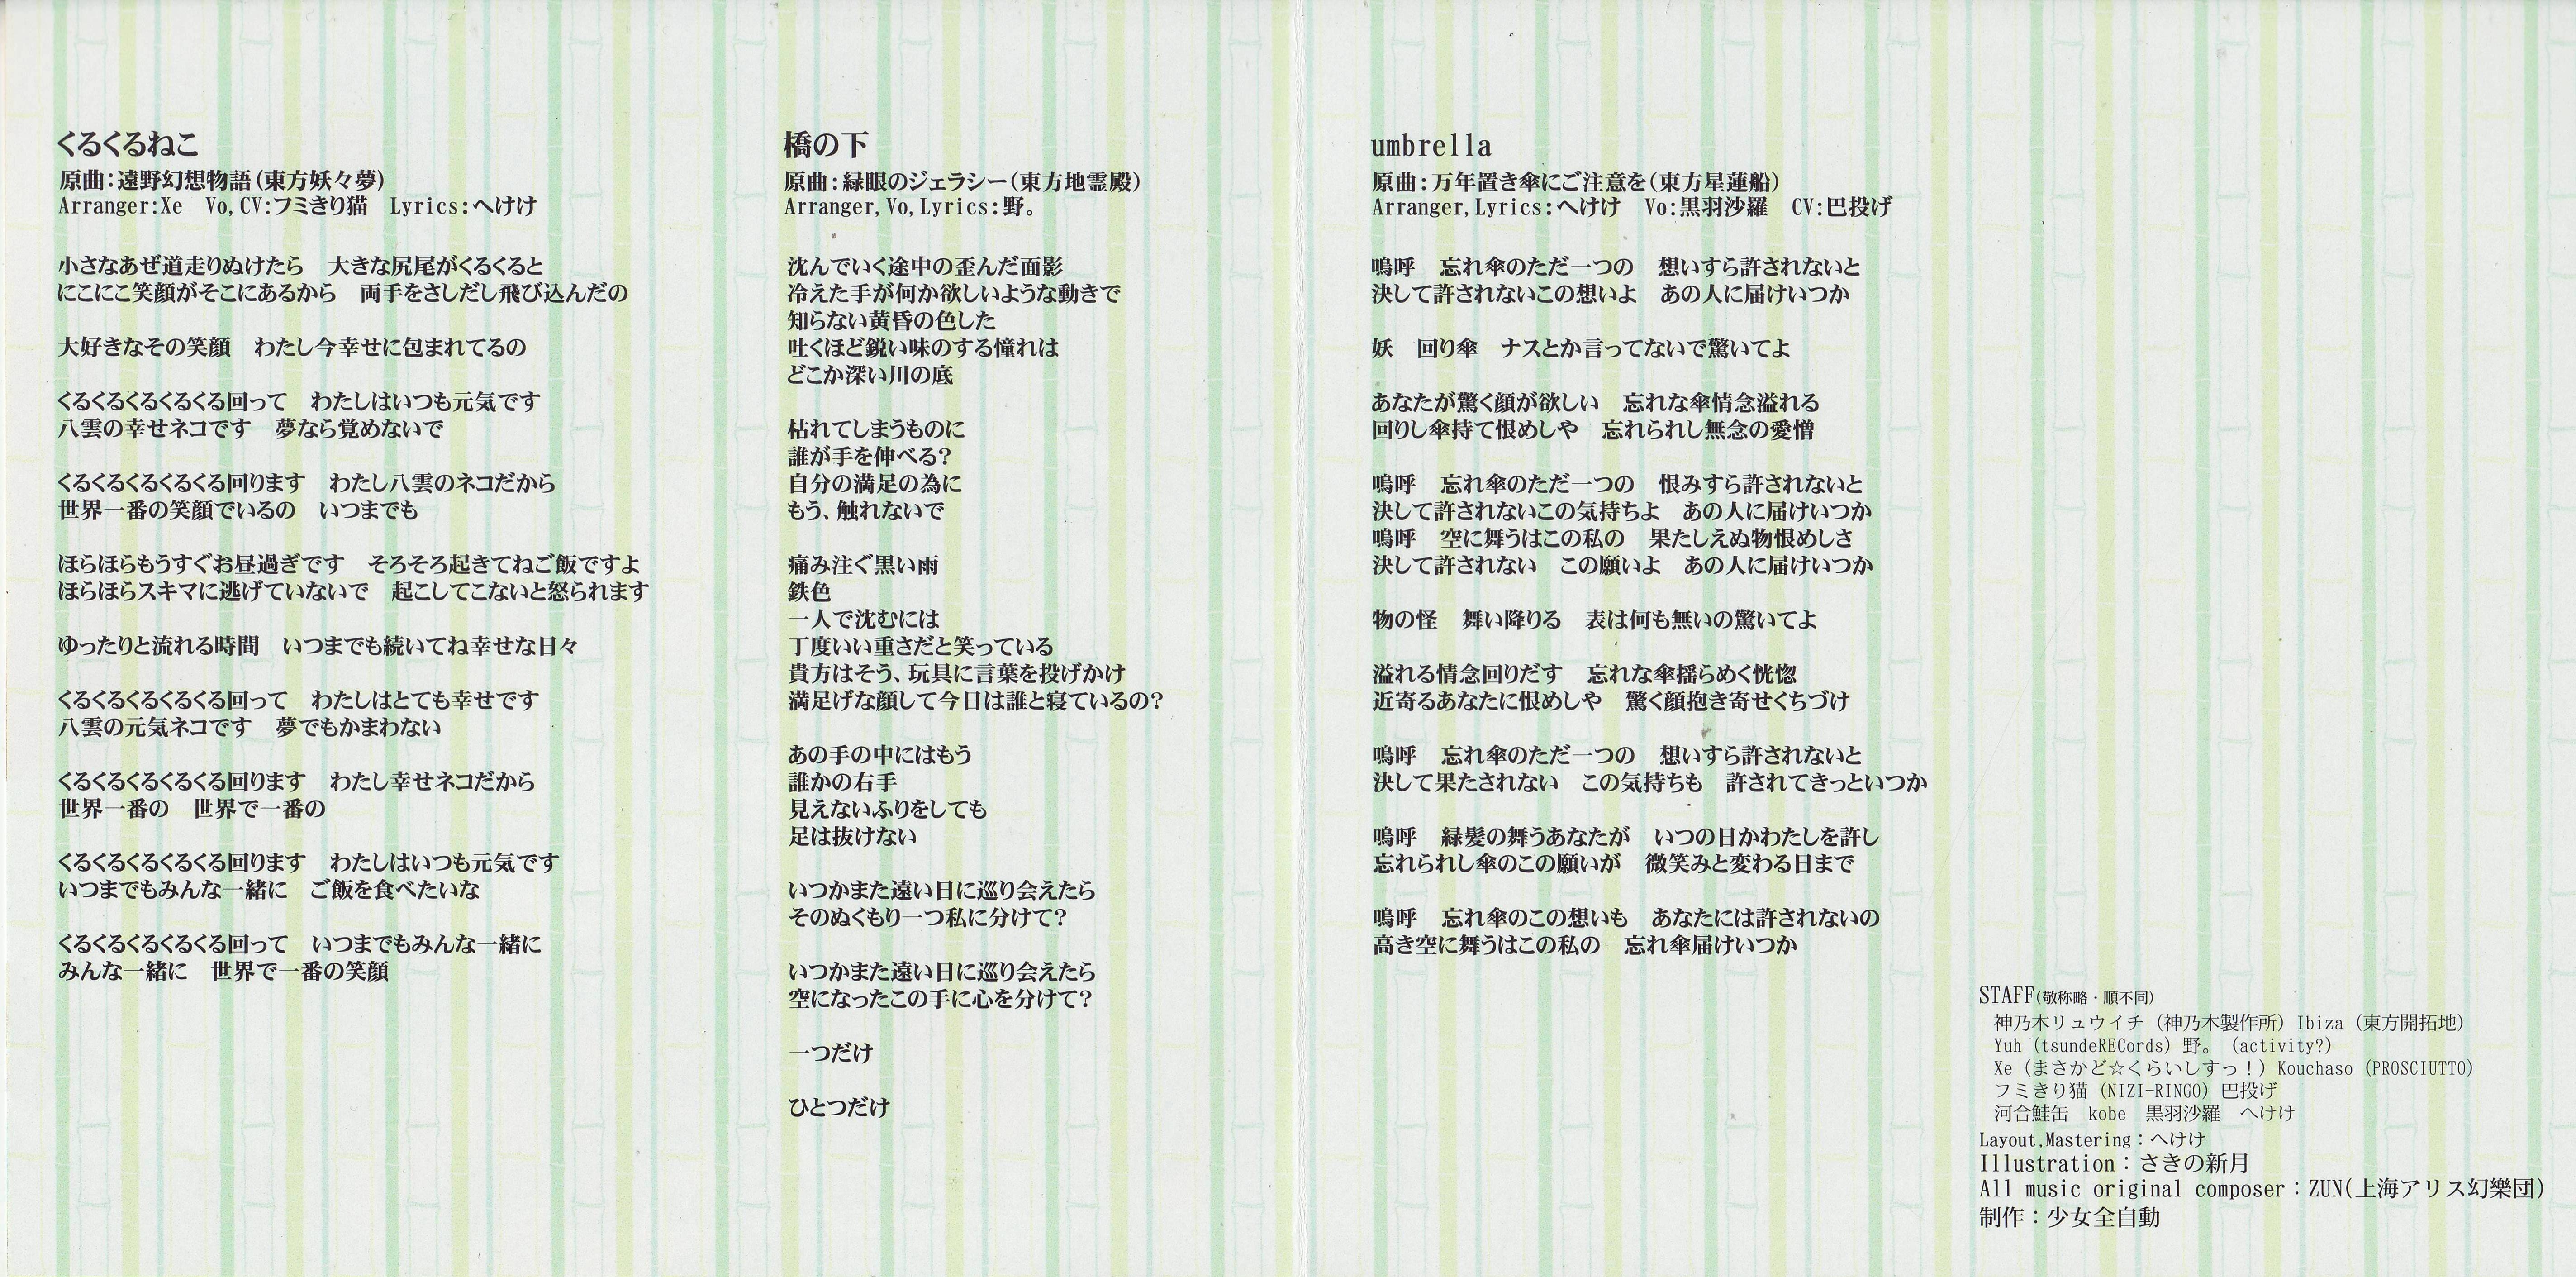 くるくるねこ
原曲:遠野幻想物語(東方妖々夢)
Arranger:Xe　Vo,CV:フミきり猫　Lyrics:へけけ
小さなあぜ道走りぬけたら　大きな尻尾がくるくると
にこにこ笑顔がそこにあるから　両手をさしだし飛び込んだの
大好きなその笑顔　わたし今幸せに包まれてるの
くるくるくるくるくる回って　わたしはいつも元気です
八雲の幸せネコです　夢なら覚めないで
くるくるくるくるくる回ります　わたし八雲のネコだから
世界一番の笑顔でいるの　いつまでも
ほらほらもうすぐお昼過ぎです　そろそろ起きてねご飯ですよ
ほらほらスキマに逃げていないで　起こしてこないと怒られます
ゆったりと流れる時間　いつまでも続いてね幸せな日々
くるくるくるくるくる回って　わたしはとても幸せです
八雲の元気ネコです　夢でもかまわない
くるくるくるくるくる回ります　わたし幸せネコだから
世界一番の　世界で一番の
くるくるくるくるくる回ります　わたしはいつも元気です
いつまでもみんな一緒に　ご飯を食べたいな
くるくるくるくるくる回って　いつまでもみんな一緒に
みんな一緒に　世界で一番の笑顔
橋の下
原曲:緑眼のジェラシー(東方地霊殿)
Arranger,Vo,Lyrics:野。
沈んでいく途中の歪んだ面影
冷えた手が何か欲しいような動きで
知らない黄昏の色した
吐くほど鋭い味のする憧れは
どこか深い川の底
枯れてしまうものに
誰が手を伸べる?
自分の満足の為に
もう、触れないで
痛み注ぐ黒い雨
鉄色
一人で沈むには
丁度いい重さだと笑っている
貴方はそう、玩具に言葉を投げかけ
満足げな顔して今日は誰と寝ているの?
あの手の中にはもう
誰かの右手
見えないふりをしても
足は抜けない
いつかまた遠い日に巡り会えたら
そのぬくもり一つ私に分けて?
いつかまた遠い日に巡り会えたら
空になったこの手に心を分けて?
一つだけ
ひとつだけ
umbrella
原曲:万年置き傘にご注意を(東方星蓮船)
Arranger,Lyrics:へけけ　Vo:黒羽沙羅　CV:巴投げ
嗚呼　忘れ傘のただ一つの　想いすら許されないと
決して許されないこの想いよ　あの人に届けいつか
妖　回り傘　ナスとか言ってないで驚いてよ
あなたが驚く顔が欲しい　忘れな傘情念溢れる
回りし傘持て恨めしや　忘れられし無念の愛憎
嗚呼　忘れ傘のただ一つの　恨みすら許されないと
決して許されないこの気持ちよ　あの人に届けいつか
嗚呼　空に舞うはこの私の　果たしえぬ物恨めしさ
決して許されない　この願いよ　あの人に届けいつか
物の怪　舞い降りる　表は何も無いの驚いてよ
溢れる情念回りだす　忘れな傘揺らめく恍惚
近寄るあなたに恨めしや　驚く顔抱き寄せくちづけ
嗚呼　忘れ傘のただ一つの　想いすら許されないと
決して果たされない　この気持ちも　許されてきっといつか
嗚呼　緑髪の舞うあなたが　いつの日かわたしを許し
忘れられし傘のこの願いが　微笑みと変わる日まで
嗚呼　忘れ傘のこの想いも　あなたには許されないの
高き空に舞うはこの私の　忘れ傘届けいつか
STAFF(敬称略・順不同)
神乃木リュウイチ (神乃木製作所) Ibiza (東方開拓地)
Yuh (tsundeRECords) 野。 (activity?)
Xe (まさかど☆くらいしすっ!) Kouchaso (PROSCIUTTO)
フミきり猫 (NIZI-RINGO) 巴投げ
河合鮭缶　kobe　黒羽沙羅　へけけ
Layout,Mastering:へけけ
Illustration:さきの新月
All music original composer:ZUN(上海アリス幻樂団)
制作:少女全自動